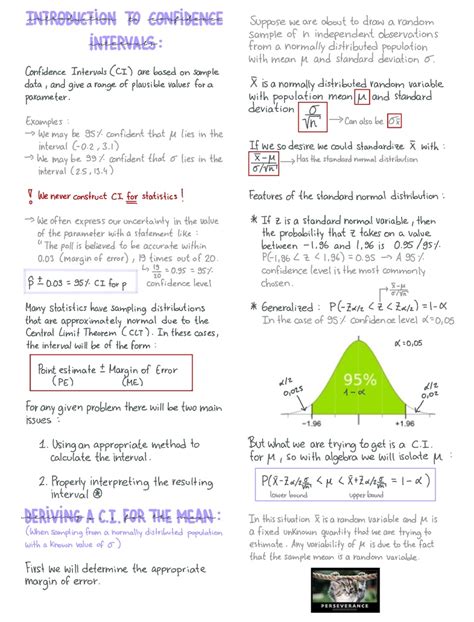 INTRODUCTION TO CONFIDENCE
INTERVALS:
Confidence Intervals (CI) are based on sample
data, and give a range of plausible values for a
parameter.
Examples:
→ We may be 95% confident that μ lies in the
interval (-0.2, 3.1)
→ We may be 99% confident that σ lies in the
interval (2.5, 13.4)
! We never construct C.I. for statistics!
→ We often express our uncertainty in the value
of the parameter with a statement like:
"The poll is believed to be accurate within
0.03 (margin of error), 19 times out of 20.
↳ 19/20 = 0.95 = 95%
confidence level
p̂ ± 0.03 = 95% CI for p
Many statistics have sampling distributions
that are approximately normal due to the
Central Limit Theorem (CLT). In these cases,
the interval will be of the form:
Point estimate ± Margin of Error
(PE) (ME)
For any given problem there will be two main
issues:
1. Using an appropriate method to
calculate the interval.
2. Properly interpreting the resulting
interval ⊛
DERIVING A C.I. FOR THE MEAN:
(When sampling from a normally distributed population
with a known value of σ)
First we will determine the appropriate
margin of error.
Suppose we are about to draw a random
sample of n independent observations
from a normally distributed population
with mean μ and standard deviation σ.
X̄ is a normally distributed random variable
with population mean μ and standard
deviation σ/√n → Can also be σx̄
If we so desire we could standardize X̄ with:
x̄-μ / σ/√n → Has the standard normal distribution
Features of the standard normal distribution:
* If z is a standard normal variable, then
the probability that z takes on a value
between -1.96 and 1.96 is 0.95/95%
P(-1.96 < z < 1.96) = 0.95 → A 95%
confidence level is the most commonly
chosen.
→ x̄-μ / σ/√n
* Generalized: P(-Zα/2 < Z < Zα/2) = 1-α
In the case of 95% confidence level α=0,05
α=0,05
α/2
0,025
95%
1-α
α/2
0,025
-1.96
+1.96
But what we are trying to get is a C.I.
for μ, so with algebra we isolate μ:
P(X̄-Zα/2 σ/√n < μ < X̄+Zα/2 σ/√n = 1-α)
lower bound upper bound
In this situation X̄ is a random variable and μ is
a fixed unknown quantity that we are trying to
estimate. Any variability of μ is due to the fact
that the sample mean is a random variable.
PERSEVERANCE